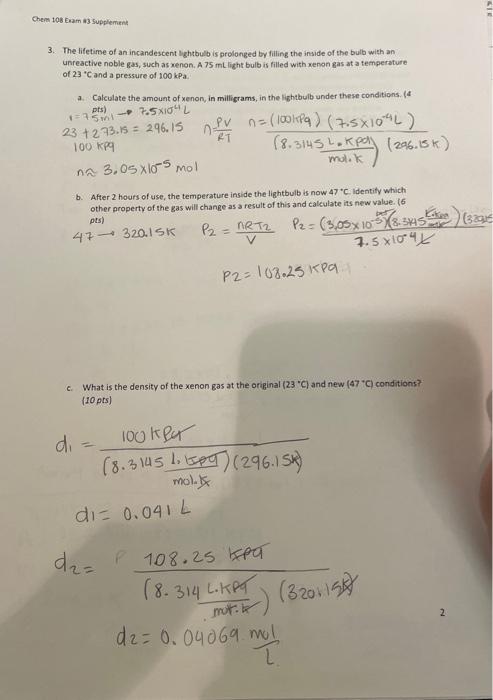 Chem 108 Exam #3 Supplement
3. The lifetime of an incandescent lightbulb is prolonged by filling the inside of the bulb with an
unreactive noble gas, such as xenon. A 75 mL light bulb is filled with xenon gas at a temperature
of 23 °C and a pressure of 100 kPa.
a. Calculate the amount of xenon, in milligrams, in the lightbulb under these conditions. (4
pts)
75ml → 7.5x10⁻⁴ L
23 + 273.15 = 296.15
100 kPa
n = PV / RT
n = (100kPa) (7.5x10⁻⁴L) / (8.3145 L.kPa / mol.k) (296.15K)
n ≈ 3.05x10⁻⁵ mol
b. After 2 hours of use, the temperature inside the lightbulb is now 47 °C. Identify which
other property of the gas will change as a result of this and calculate its new value. (6
pts)
47 → 320.15K
P2 = nRT2 / V
P2 = (3.05x10⁻⁵)(8.3145 / 7.5x10⁻⁴L
P2 = 108.25 kPa
c. What is the density of the xenon gas at the original (23 °C) and new (47 °C) conditions?
(10 pts)
d1 = 100 kPa / (8.3145 L.kPa / mol.K)(296.15K)
d1 = 0.041 L
d2 = 108.25 kPa / (8.314 L.KPa / mol.k) (320.15K)
d2 = 0.04069 mol / L
2